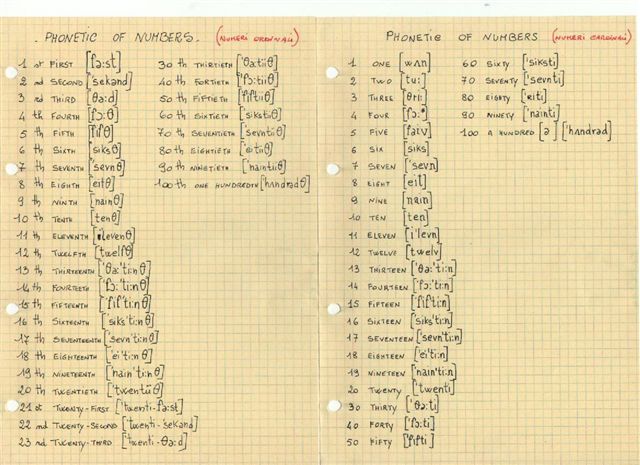 PHONETIC OF NUMBERS. (NUMERI ORDINALI)
1 st FIRST [fə:st]
2 nd SECOND ['sekənd]
3 rd THIRD [θə:d]
4 th FOURTH [fɔ:θ]
5 th FIFTH [fifθ]
6 th SIXTH [siksθ]
7 th SEVENTH [sevnθ]
8 th EIGHTH [eitθ]
9 th NINTH [nainθ]
10 th TENTH [tenθ]
11 th ELEVENTH [i'levenθ]
12 th TWELFTH [twelfθ]
13 th THIRTEENTH ['θə:'ti:nθ]
14 th FOURTEETH ['fɔ:'ti:nθ]
15 th FIFTEENTH ['fif'ti:nθ]
16 th SIXTEENTH ['siks'ti:nθ]
17 th SEVENTEENTH ['sevn'ti:nθ]
18 th EIGHTEENTH ['ei'ti:nθ]
19 th NINETEENTH ['nain'ti:nθ]
20 th TWENTIETH ['twentiiθ]
21 st TWENTY-FIRST ['twenti-fə:st]
22 nd TWENTY-SECOND ['twenti-'sekənd]
23 rd TWENTY-THIRD ['twenti-θə:d]
30 th THIRTIETH ['θə:tiiθ]
40 th FORTIETH ['fɔ:tiiθ]
50 th FIFTIETH ['fiftiiθ]
60 th SIXTIETH ['sikstiiθ]
70 th SEVENTIETH ['sevntiiθ]
80 th EIGHTIETH ['eitiiθ]
90 th NINETIETH ['naintiiθ]
100 th ONE HUNDREDTH ['hʌndrədθ]
PHONETIC OF NUMBERS (NUMERI CARDINALI)
1 ONE [wʌn]
2 TWO [tu:]
3 THREE [θri:]
4 FOUR [fɔ:*]
5 FIVE [faiv]
6 SIX [siks]
7 SEVEN ['sevn]
8 EIGHT [eit]
9 NINE [nain]
10 TEN [ten]
11 ELEVEN [i'levn]
12 TWELVE [twelv]
13 THIRTEEN ['θə:'ti:n]
14 FOURTEEN ['fɔ:'ti:n]
15 FIFTEEN ['fif'ti:n]
16 SIXTEEN ['siks'ti:n]
17 SEVENTEEN ['sevn'ti:n]
18 EIGHTEEN ['ei'ti:n]
19 NINETEEN ['nain'ti:n]
20 TWENTY ['twenti]
30 THIRTY ['θə:ti]
40 FORTY ['fɔ:ti]
50 FIFTY ['fifti]
60 SIXTY ['siksti]
70 SEVENTY ['sevnti]
80 EIGHTY ['eiti]
90 NINETY ['nainti]
100 A HUNDRED [ə] ['hʌndrəd]